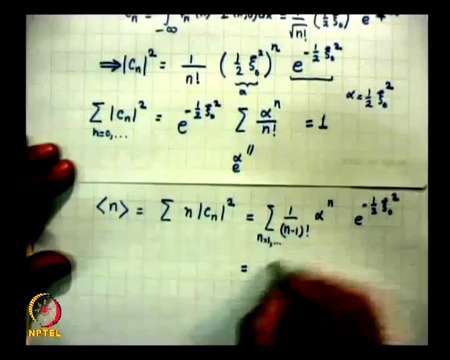 n = ∫ -∞ n(n) = 1/√n! (½ξ₀²) e
⇒|Cₙ|² = 1/n! (½ξ₀²)ⁿ e^(-½ξ₀²)
α
α = ½ξ₀²
∑ n=0,... |Cₙ|² = e^(-½ξ₀²) ∑ αⁿ/n! = 1
e^α
⟨n⟩ = ∑ n|Cₙ|² = ∑ n=1,... 1/(n-1)! αⁿ e^(-½ξ₀²)
=
NPTEL